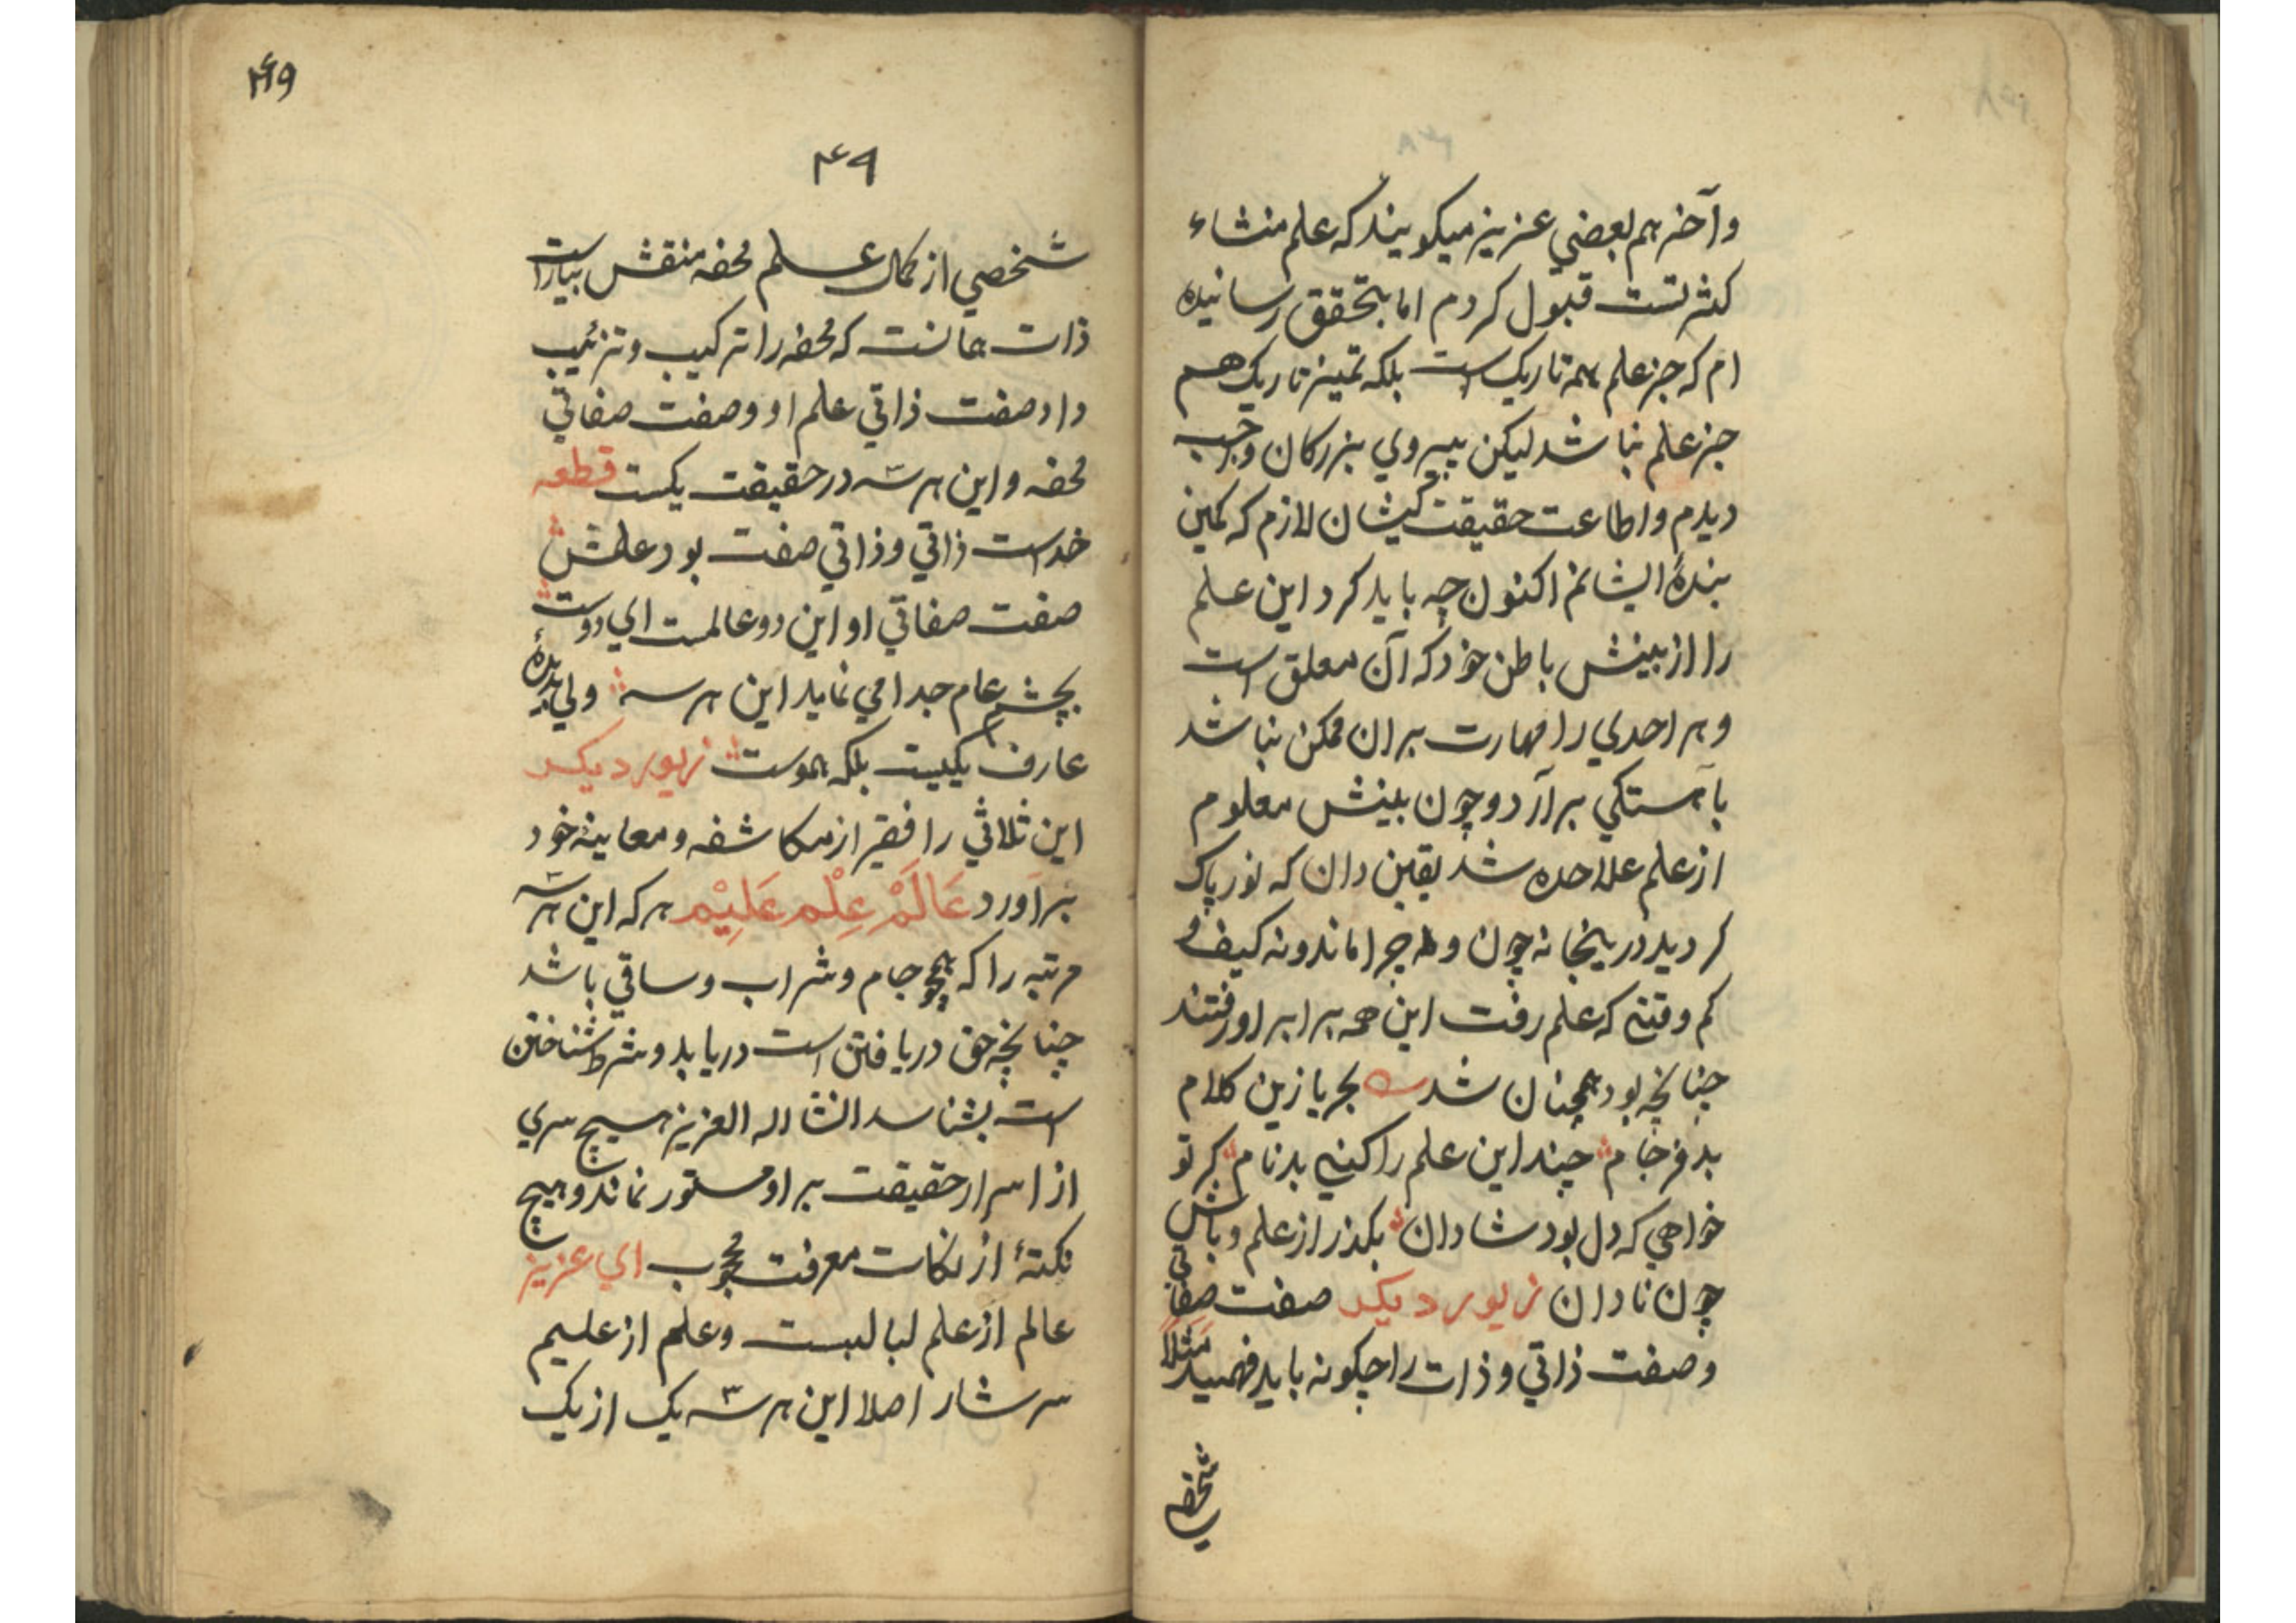 وآخر هم بعضي عزيز ميكويند كه علم منشاء
كثرتست قبول كردم اما بتحقق رسانيده
ام كه جز علم همه تاريك است بلكه تميز تاريك هم
جز علم نباشد ليكن پيروي بزركان واجب
ديدم واطاعت حقيقت كيشان لازم كه كمين
بندۀ ايشانم اكنون چه بايد كرد اين علم
را از بينش باطن خود كه آن معلق است
و هر احدي را مهارت بران ممكن نباشد
بآهستكي برآرد و چون بينش معلوم
از علم علاحده شد يقين دان كه نور پاك
كرديد در ينجا نه چون و نه چرا ماند ونه كيف و
كم وقتي كه علم رفت اين همه برابر او رفتند
چنانچه بود همچنان شد بحريا زين كلام
بد فرجام چند اين علم را كني بدنام كر تو
خواهي كه دل بود شادان بكذر از علم وباش
چون نادان زيور ديكر صفت صفاتي
وصفت ذاتي وذات را چكونه بايد فهميد مثلاً
شخصي
۴۹
۴۹
شخصي از كمال علم محفه منقش بياراست
ذات همانست كه محفه را تركيب وتزئيب
داد صفت ذاتي علم او وصفت صفاتي
محفه و اين هر سه در حقيقت يكست قطعه
خداست ذاتي وذاتي صفت بود علمش
صفت صفاتي او اين دو عالمست اي دوست
بچشم عام جدا مي نمايد اين هر سه ولي بديدۀ
عارف يكيست بلكه هموست زيور ديكر
اين ثلاثي را فقير از مكاشفه ومعاينه خود
برآورد عَالَمْ عِلْم عَلِيْم هر كه اين هر سه
مرتبه را كه همچو جام وشراب وساقي باشد
چنانچه حق دريافتن است دريابد وشرط شناختن
است بشناسد انشا اله العزيز هيچ سري
از اسرار حقيقت بر او مستور نماند وهيچ
نكتۀ از نكات معرفت محجوب اي عزيز
عالم از علم لبالبست وعلم از عليم
سرشار اصلا اين هر سه يك از يك